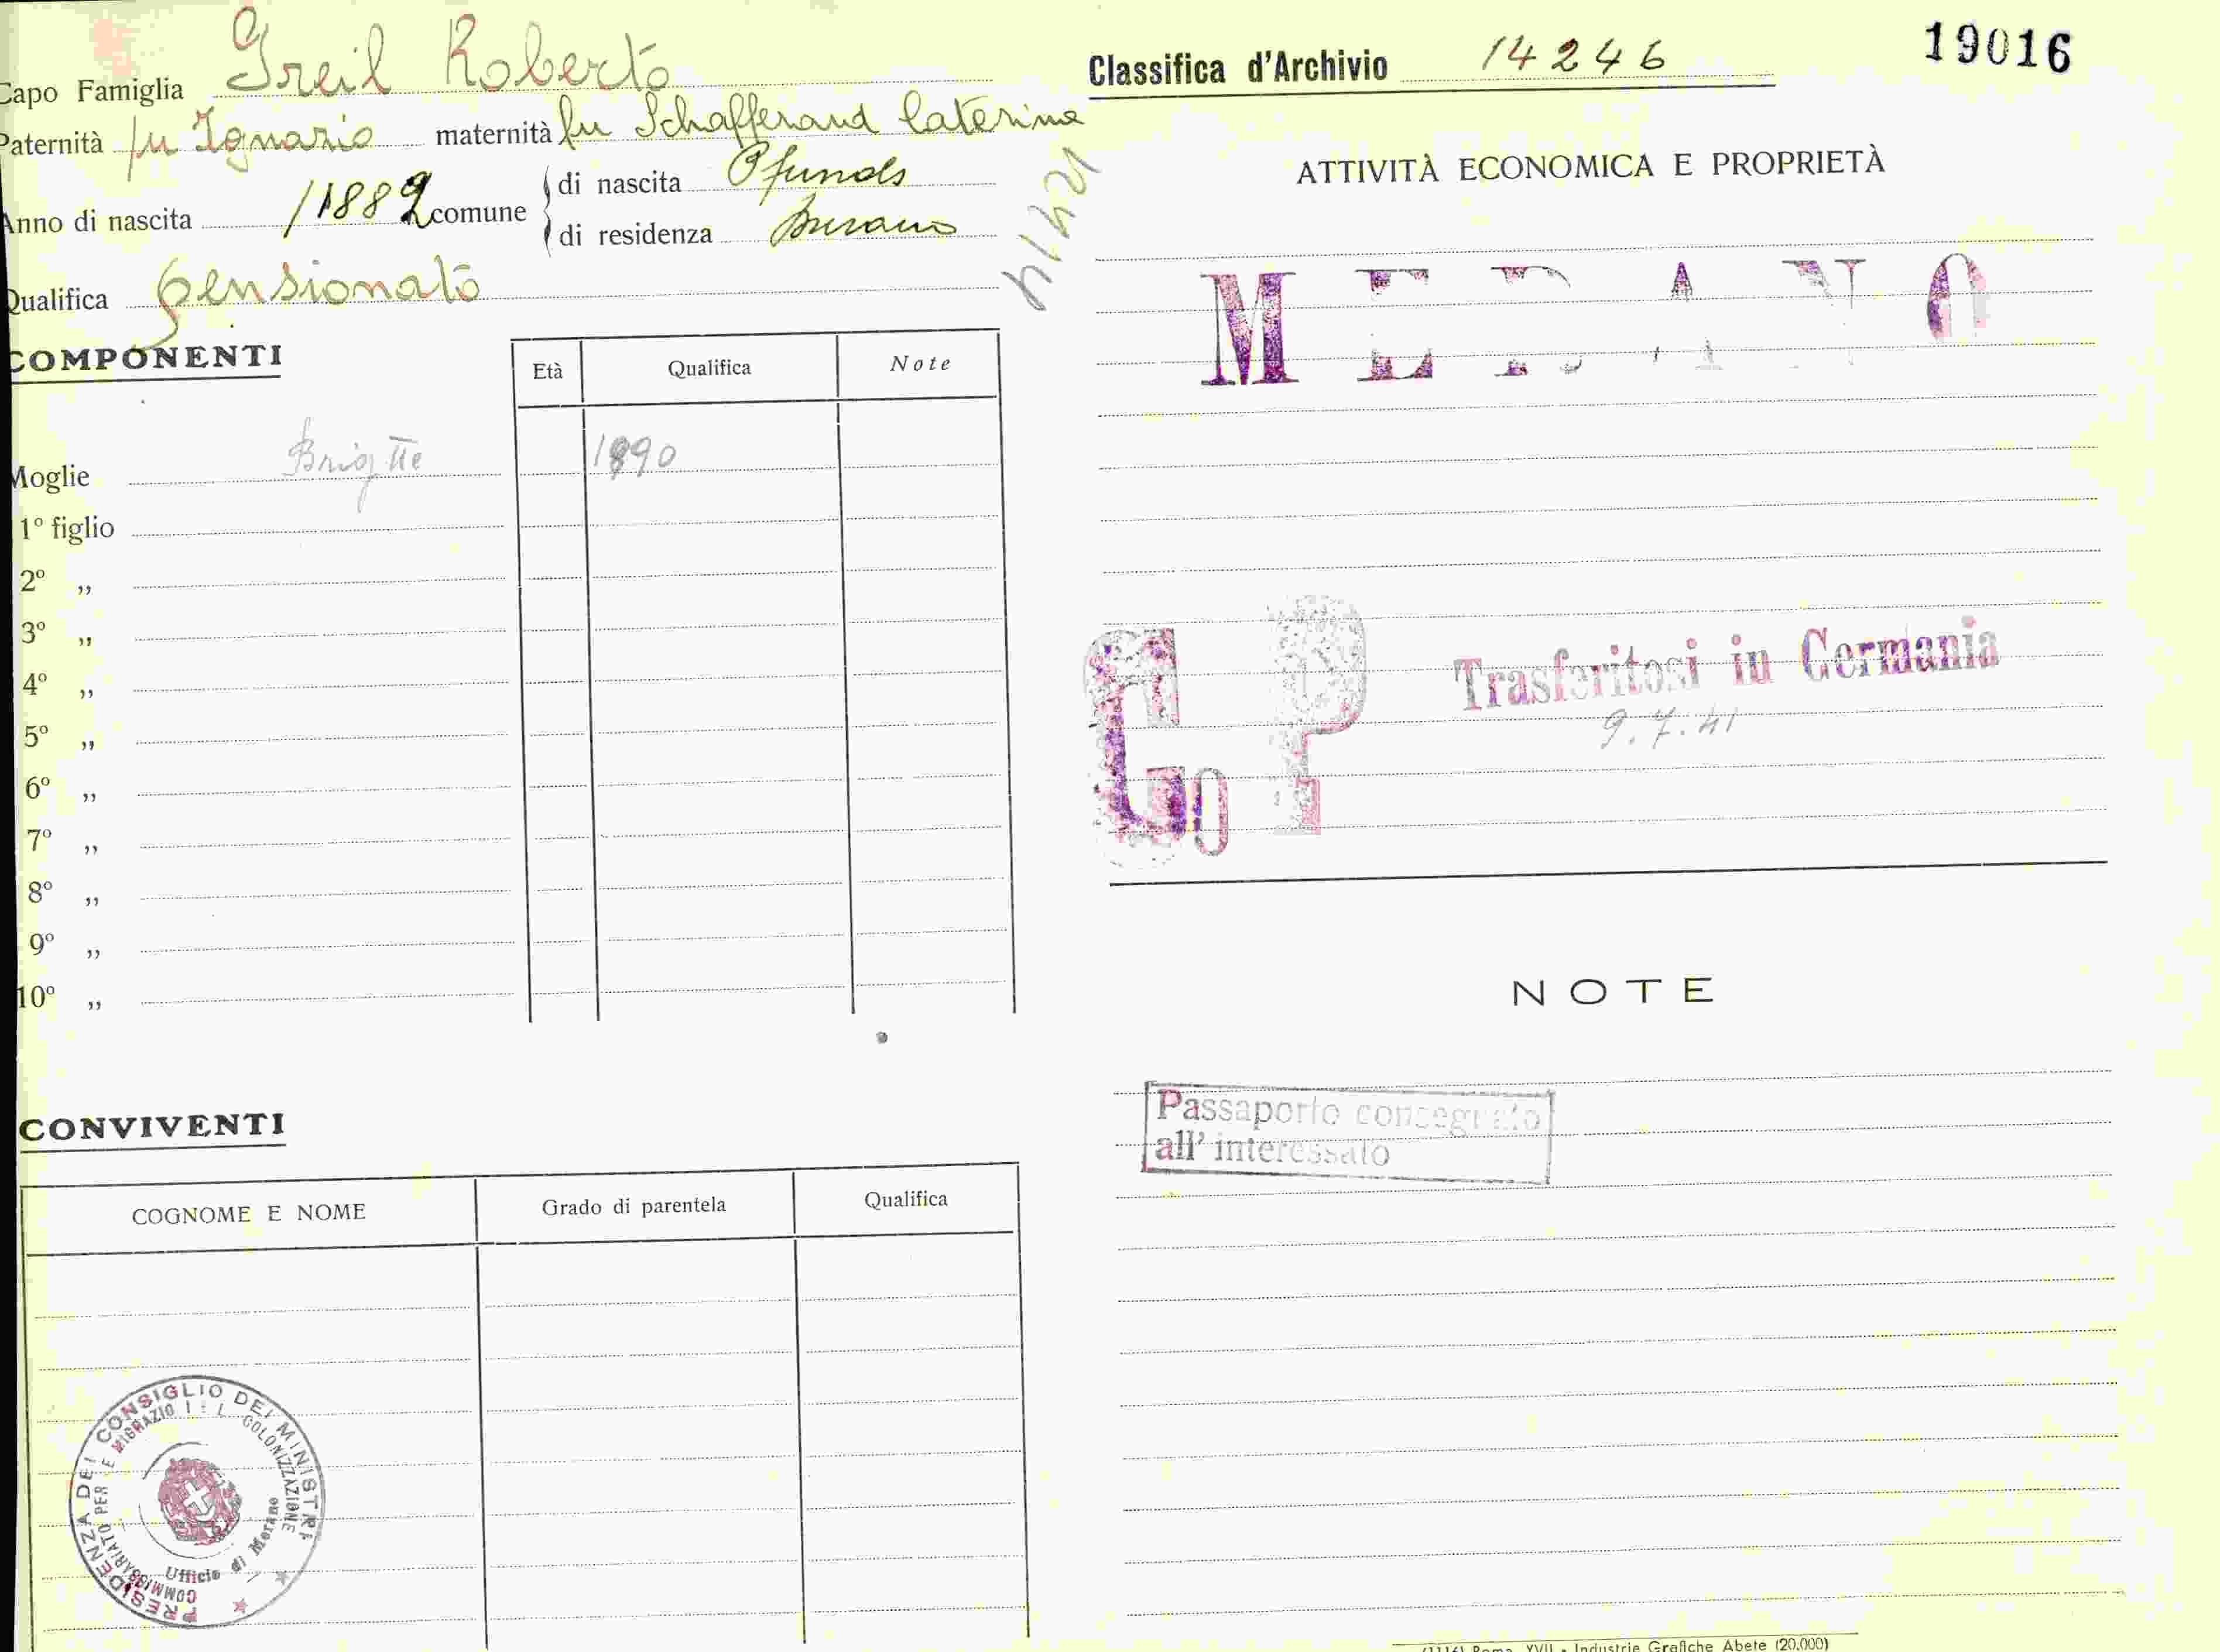 Capo Famiglia Greil Roberto
Paternità fu Ignazio maternità fu Schafferand Caterina
Anno di nascita /1882 comune di nascita Pfunds
di residenza Merano
Qualifica pensionato
COMPONENTI
Età Qualifica Note
Moglie Brigitte 1890
1º figlio
2º „
3º „
4º „
5º „
6º „
7º „
8º „
9º „
10º „
CONVIVENTI
COGNOME E NOME Grado di parentela Qualifica
PRESIDENZA DEL CONSIGLIO DEI MINISTRI
COMMISSARIATO PER E MIGRAZIO I E L COLONIZZAZIONE
Ufficio di Merano
Classifica d'Archivio 14246
19016
ATTIVITÀ ECONOMICA E PROPRIETÀ
MERANO
G P
Trasferitosi in Germania
9.7.41
NOTE
Passaporto consegnato
all' interessato
(1116) Roma, XVII - Industrie Grafiche Abete (20.000)